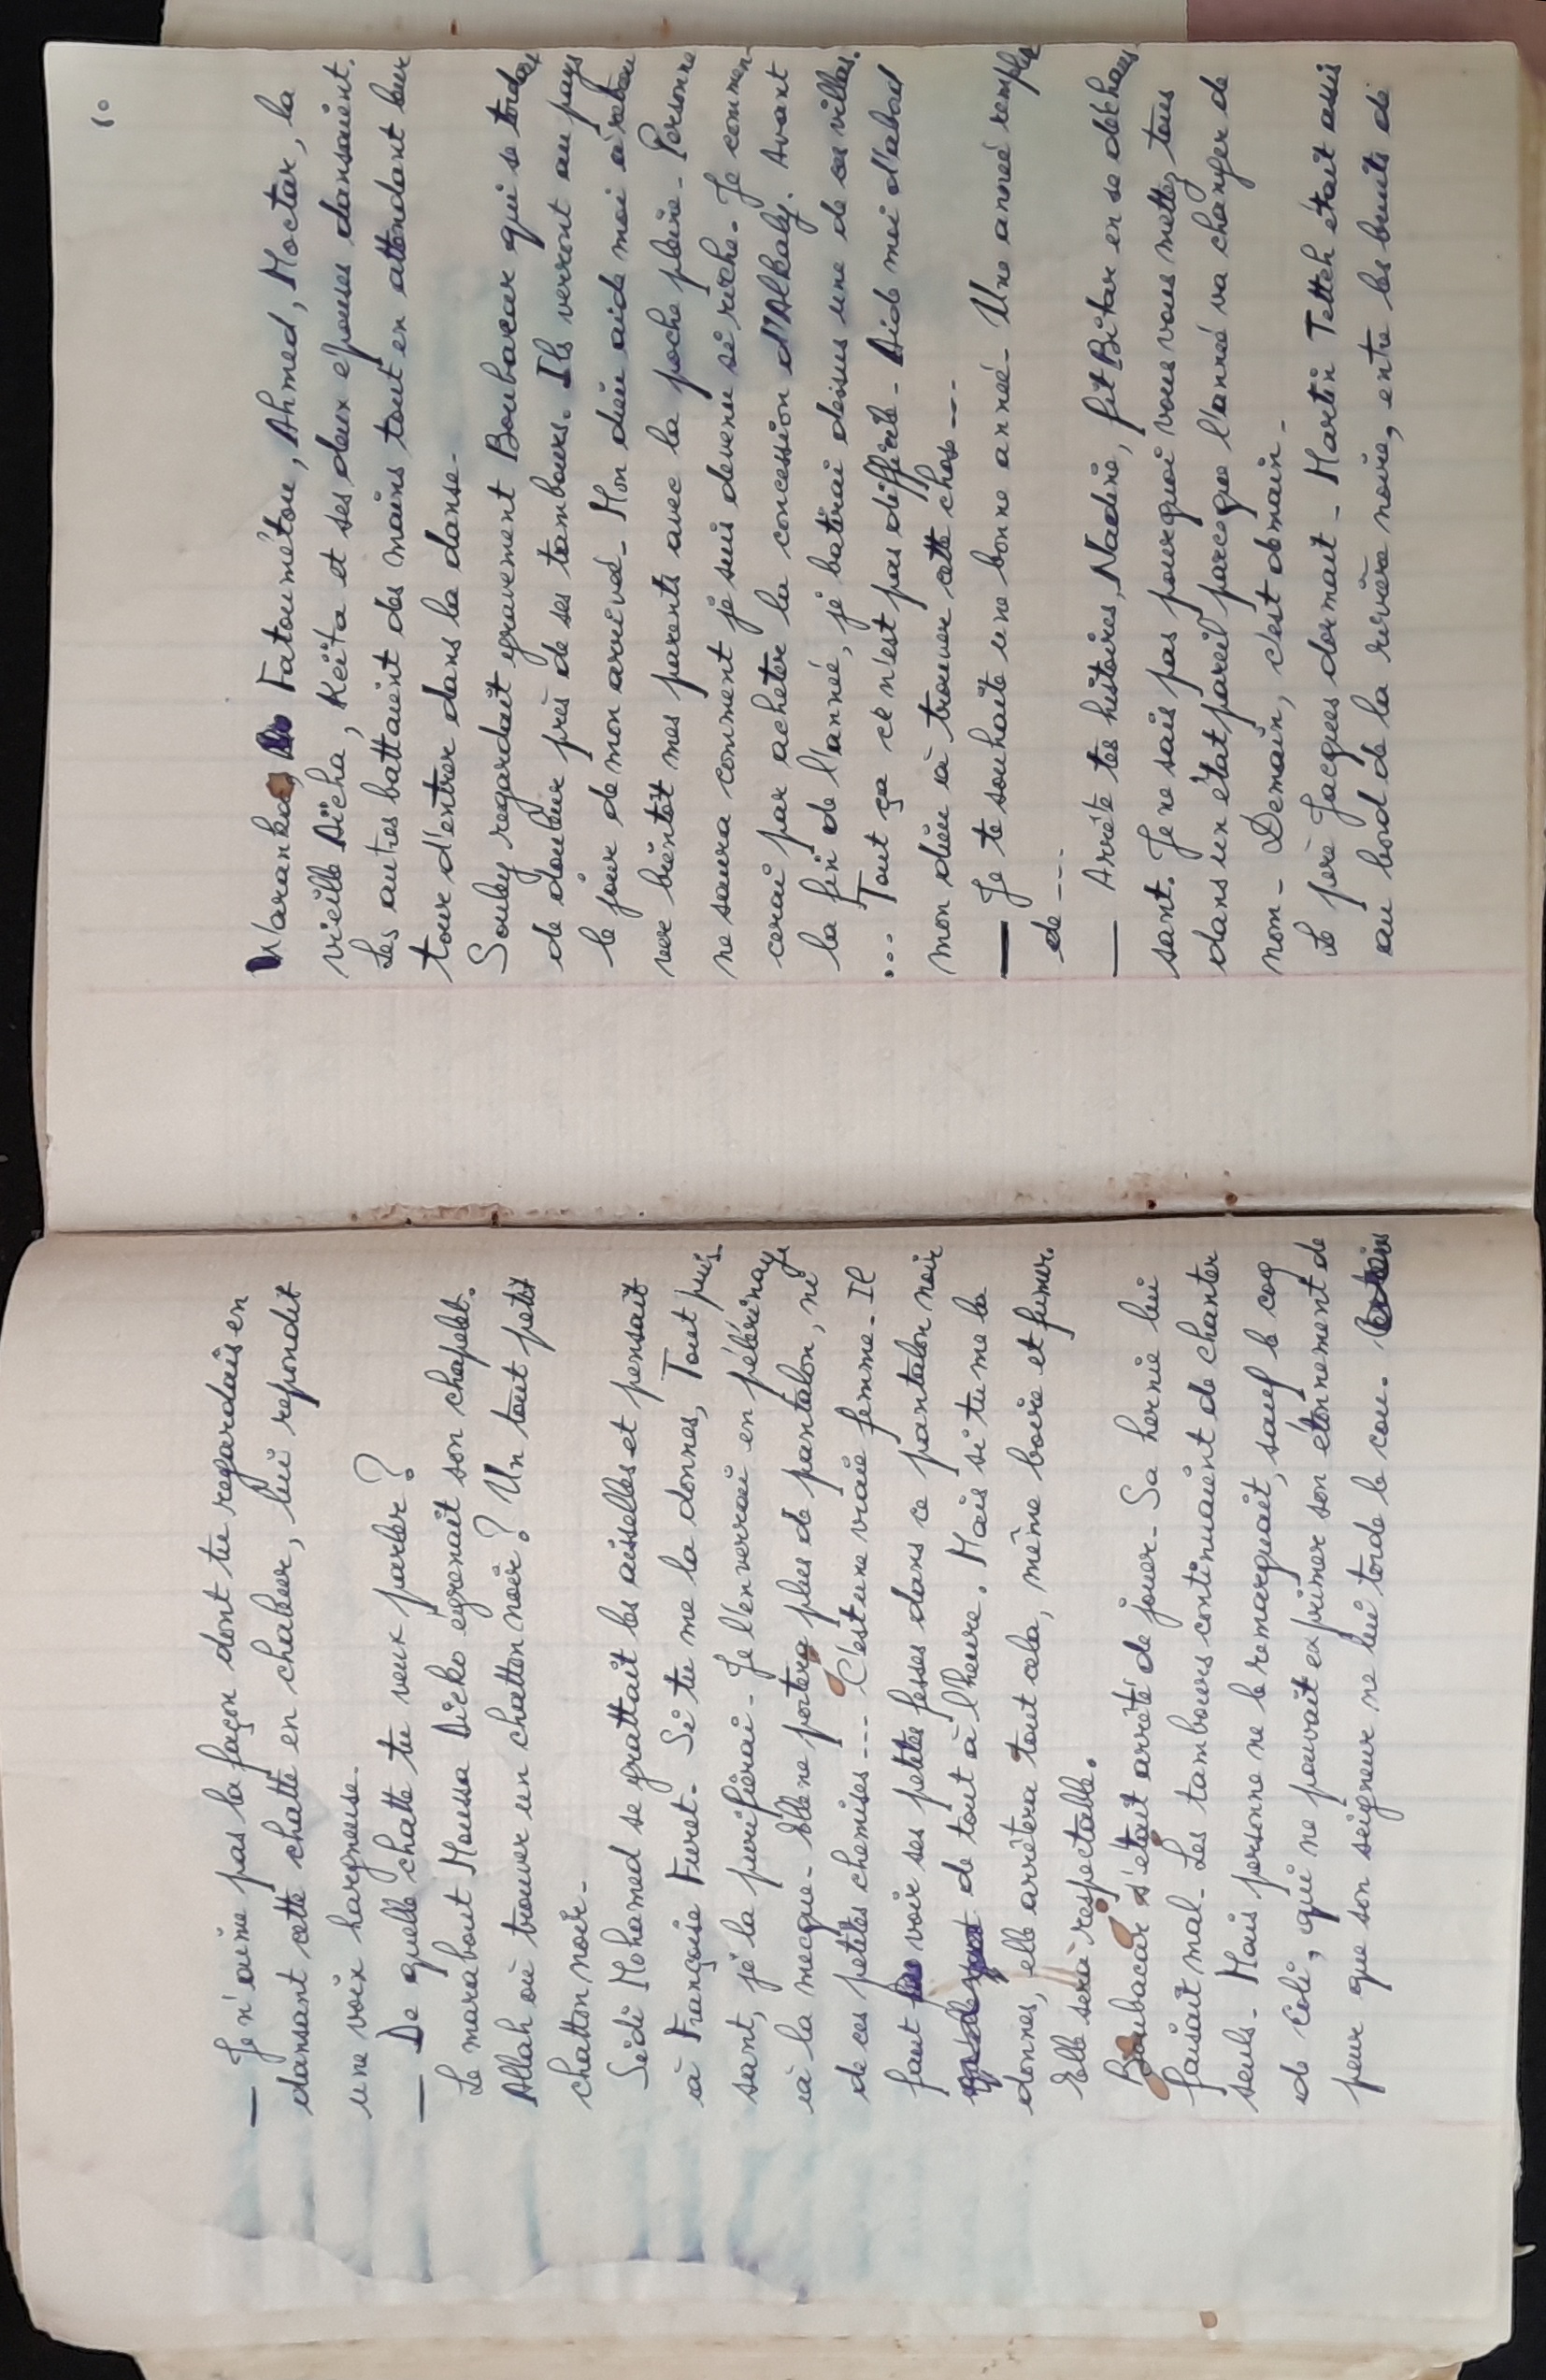 — Je n'aime pas la façon dont tu regardais en
dansant cette chatte en chaleur, lui repondit
une voix hargneuse.
— De quelle chatte tu veux parler ?
Le marabout Moussa Dicko égrenait son chapelet.
Allah où trouver un chatton noir ? Un tout petit
chatton noir.
Sidi Mohamed se grattait les aisselles et pensait
à Françoise Furet. Si tu me la donnes, Tout puis-
sant, je la purifierai. Je l'enverrai en pélérinage
à la mecque. Elle ne portera plus de pantalon, ni
de ces petites chemises... C'est une vraie femme. Il
faut voir ses petites fesses dans ce pantalon noir
de tout à l'heure. Mais si tu me la
donnes, elle arrêtera tout cela, même boire et fumer.
Elle sera respectable.
Boubacar s'était arrêté de jouer. Sa hernie lui
faisait mal. Les tambours continuaient de chanter
seuls. Mais personne ne le remarquait, sauf le coq
de Coli, qui ne pouvait exprimer son étonnement de
peur que son seigneur ne lui torde le cou.
10
Waranka, Fatoumétou, Ahmed, Moctar, la
vieille Aïcha, Keïta et ses deux épouses dansaient.
Les autres battaient des mains tout en attendant leur
tour d'entrer dans la danse.
Souley regardait gravement Boubacar qui se tordait
de douleur près de ses tambours. Ils verront au pays
le jour de mon arrivée. Mon dieu aide moi à retrou
ver bientôt mes parents avec la poche pleine. Personne
ne saura comment je suis devenu si riche. Je commen-
cerai par acheter la concession d'Alkaly. Avant
la fin de l'année, je batirai dessus une de ces villas.
... Tout ça ce n'est pas difficile. Aide moi d'abord
mon dieu à trouver cette chose...
— Je te souhaite une bonne année. Une année remplie
de...
— Arrête tes histoires, Nadine, fit Bitar en se déchaus-
sant. Je ne sais pas pourquoi vous vous mettez tous
dans un état pareil parceque l'année va changer de
nom. Demain, c'est demain.
Le père Jacques dormait. Martin Tetteh était assis
au bord de la rivière noire, entre les bruits de